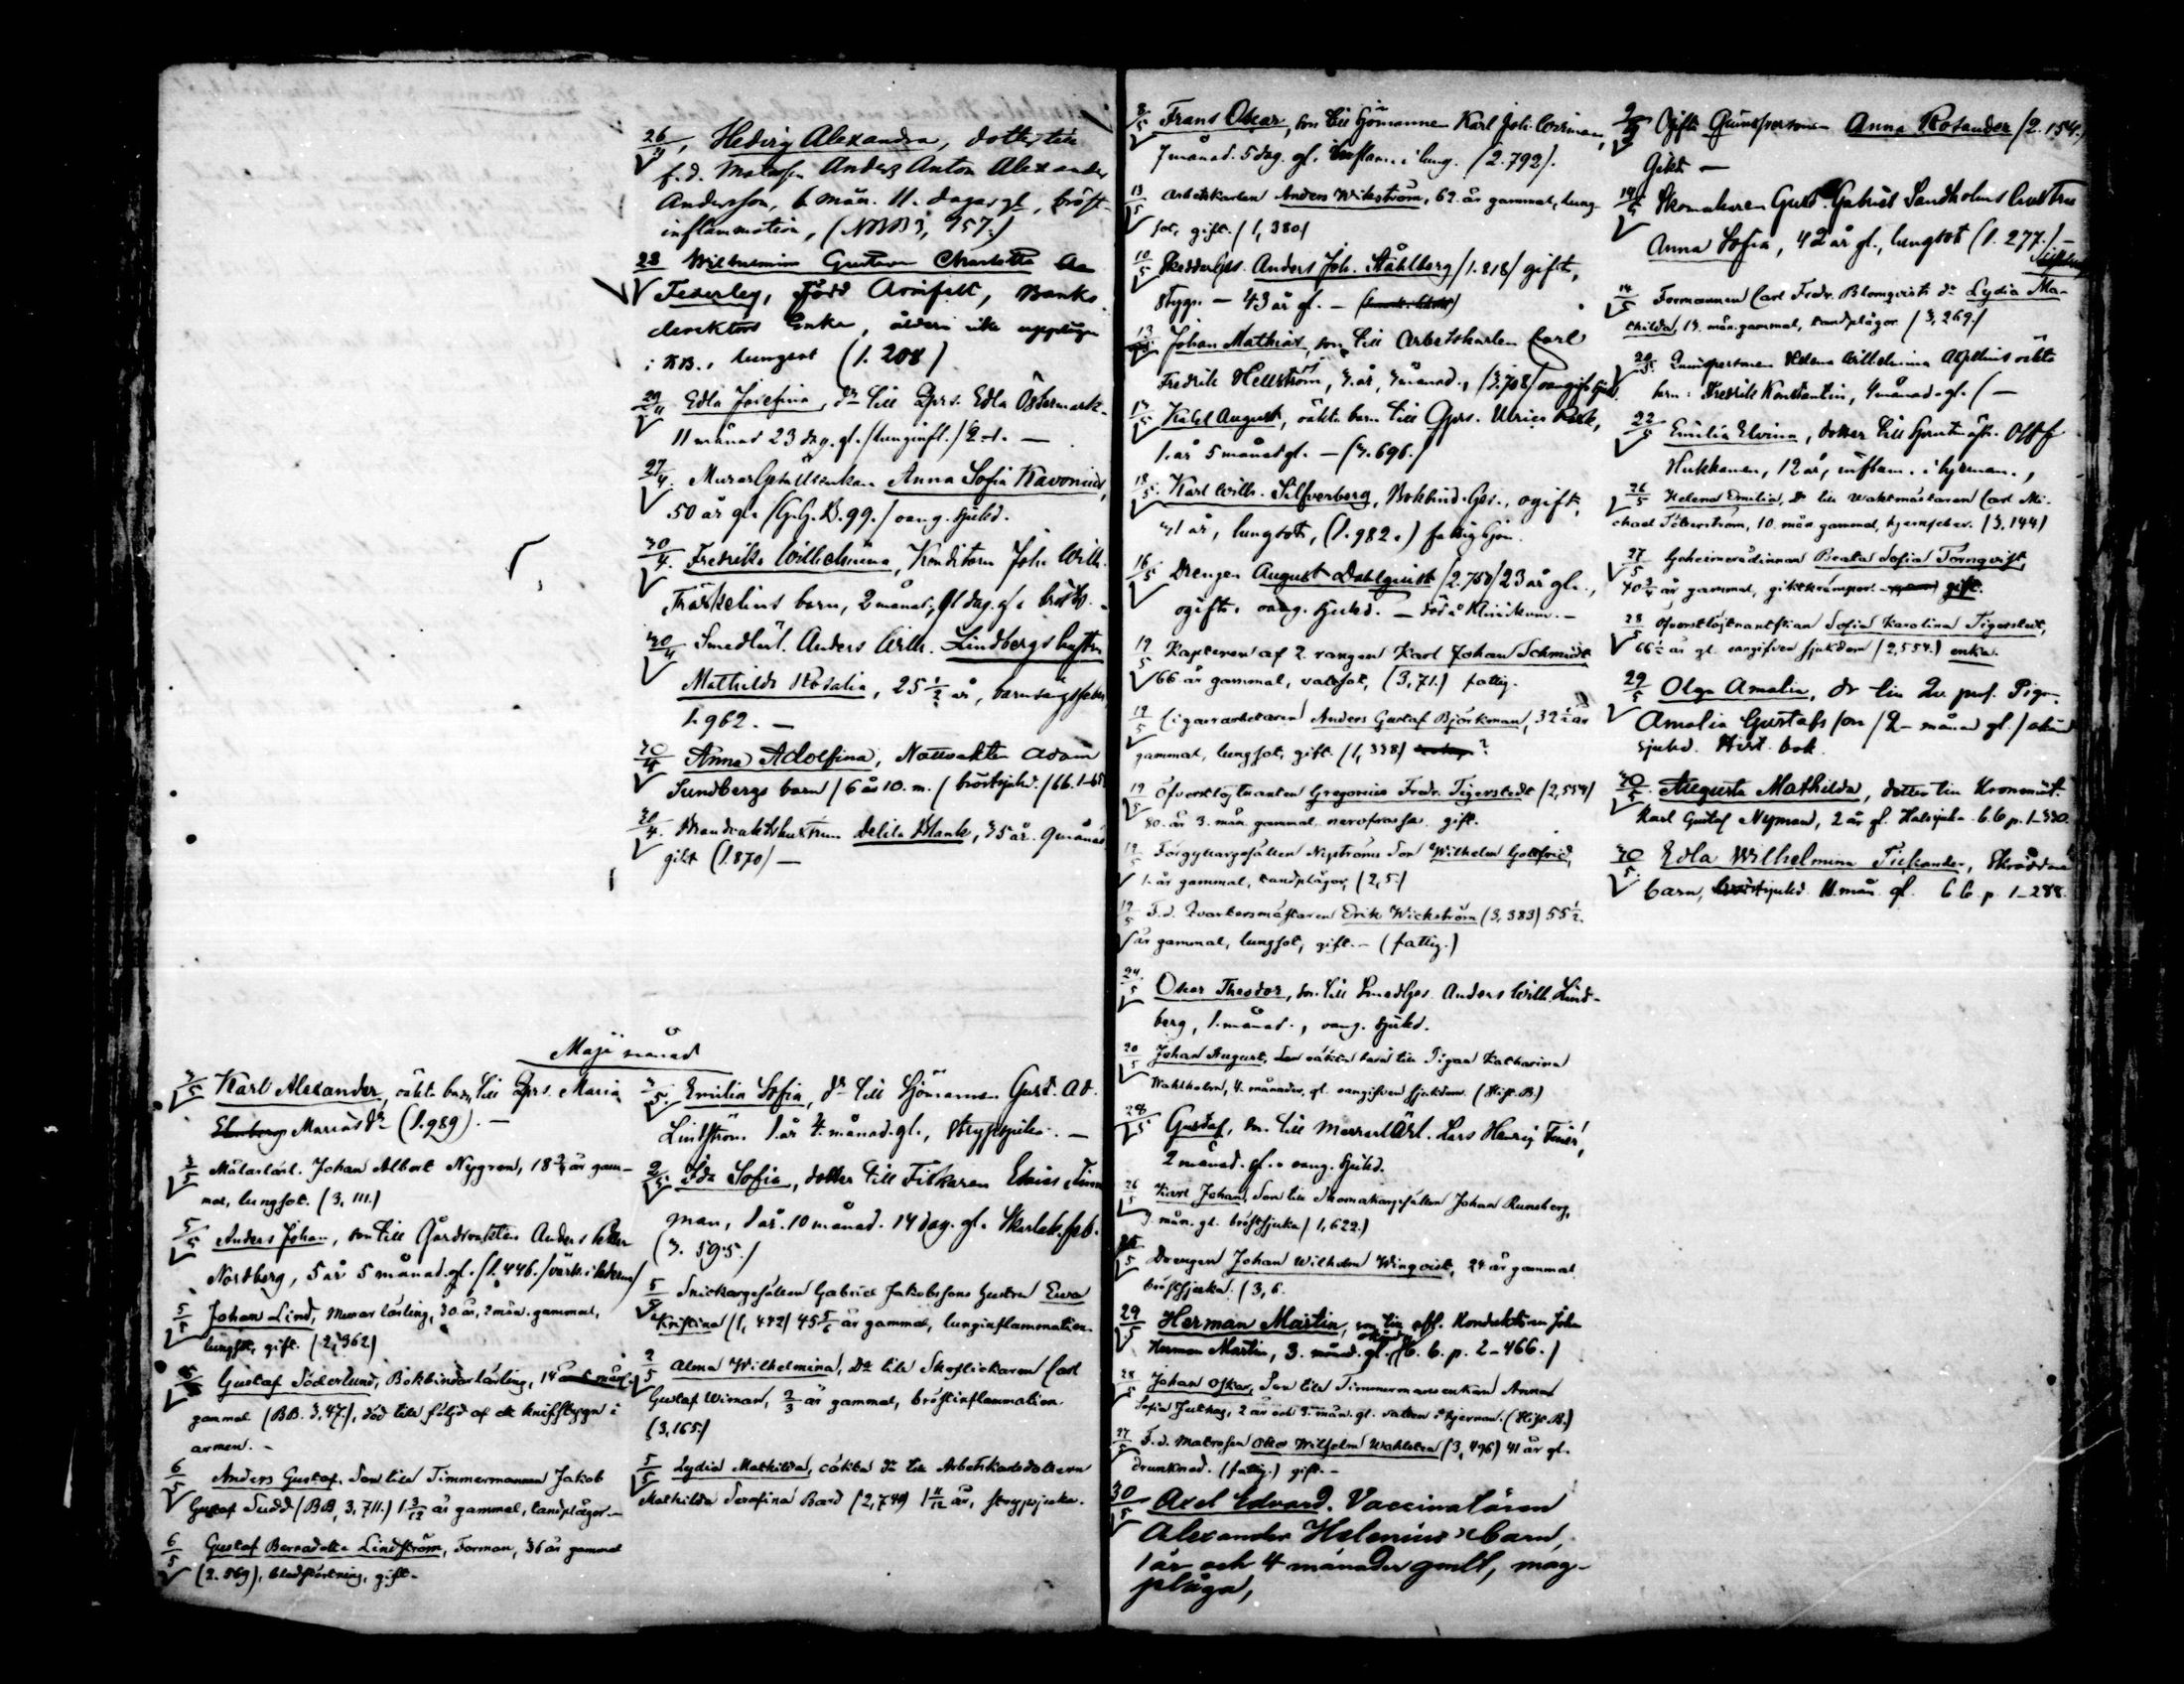 26/4 Hedvig Alexandra, dotter till
f. d. Matrosen Anders Anton Alexander
Andersson, 6 mån. 11. dagar gl, bröst-
inflammation, (NBB 3, 957.)
28 Wilhelmina Gustava Charlotta
Federley, född Armfelt, Banko
direktors Enka, ålder icke uppgifven
i KB., lungsot (1. 208)
29/4 Edla Josefina, dr till Qprs. Edla Östermark.
11 månad 23 dag. gl. /lunginfl./ 2-1. —
27/4. MurarGesällsenkan Anna Sofia Kavonius,
50 år gl. /G.G.B. 99./ oang. sjukd.
30/4. Fredrika Wilhelmina, Konditorn Joh. Wilh.
barn, 2 månad,
30/4 Smedlärl. Anders Wilh. Lindbergs hustru
Mathilda Rosalia, 25 1/2 år, barnsängsfeber
1. 962. —
30/4 Anna Adolfina, Nattvakten Adam
Sundbergs barn / 6 år 10. m. / bröstsjukd. / 66. 1-65
30/4. Brandvaktshustrun Delila Blank, 35 år. 9 månad
gikt (1. 870) —
Maji månad
3/5 Karl Alexander, oäkta barn till Qprs. Maria
Mariasdr (1. 989). —
3/5 Målarlärl. Johan Albert Nygren, 18 3/4 år gam-
mal, lungsot. (3, 111.)
5/5 Anders Johan, son till Gårdsvakten Anders
Nordberg, 5 år 5 månad. gl. (1. 446. /värk i
5/5 Johan Lind, Murarlärling, 30 år, 2 mån. gammal,
lungsot, gift. (2, 362)
Gustaf Söderlund, Bokbindarlärling, 14
gammal (BB. 3, 47.), död till följd af ett knifstygn i
armen. —
6/5 Anders Gustaf, Son till Timmermannen Jakob
Gustaf Sudd (BB, 3, 711.) 1 3/12 år gammal, tandplågor. —
6/5 Gustaf Bernadotte Lindström, Forman, 36 år gammal
(2. 869), blodstörtning, gift.
3/5. Emilia Sofia, dr till Sjömannen Gust. Ad.
Lindström 1. år 4. månad. gl., strypsjuka. —
2/5. Ida Sofia, dotter till Fiskaren Elias
man, 1 år. 10 månad. 14 dag. gl. Skarlak. feb.
(3. 595./
5/5 Snickargesällen Gabriel Jakobssons hustru Eva
Kristina (1, 442) 45 5/6 år gammal, lunginflammation.
2/5 Alma Wilhelmina, Dr till Skoflickaren Carl
Gustaf Wirman, 2/3 år gammal, bröstinflammation
(3, 165.)
5/5 Lydia Mathilda, oäkta dr till Arbetskarlsdottern
Mathilda Serafina Bard (2, 749) 1 11/12 år, strypsjuka.
8/5 Frans Oskar, son till Sjömannen Karl Joh.
7 månad. 5 dag. gl. Inflam. i lung. (2. 792).
13/5 Arbetskarlen Anders Wikström, 62. år gammal, lung-
sot, gift. (1, 380)
10/5 SkeddarGes. Anders Joh. Ståhlberg /1. 818/ gift,
stygn — 43 år gl. —
13/5 Johan Mathias, son till Arbetskarlen Carl
Fredrik Hellström, 3. år, 3 månad., (3. 708) oangif. sjukd.
17/5 Karl August, oäkta barn till Qprs. Ulrica
1. år 5 månad gl. — (3. 696.)
18/5. Karl Wilh. Silfverberg, Bokbind. Ges., ogift,
31 år, lungsot, (1. 982.) fattighjon.
16/5 Drengen August Dahlquist /2. 750/ 23 år gl.,
ogift, oang. sjukd. — död å Klinikum. —
19/5 Kaptenen af 2. rangen Karl Johan Schmidt
66 år gammal, vatsot, (3, 71.) fattig.
19/5 Cigarrarbetaren Anders Gustaf Björkman, 32 1/2 år
gammal, lungsot, gift. (1, 338) ?
19/5 Öfverstlöjtnanten Gregorius Fredr. Tigerstedt (2, 554)
80. år 3. mån. gammal. gift.
19/5 Förgyllaregesällen Nyströms Son Wilhelm Gottfrid,
1. år gammal, tandplågor, (2, 5.)
19/5 F. d. Qvartersmästaren Erik Wickström (3, 383) 55 1/2.
år gammal, lungsot, gift. — (fattig.)
24/5 Oskar Theodor, son till SmedGes. Anders Wilh. Lind-
berg, 1. månad., oang. sjukd.
20/5 Johan August, Son oäkta barn till Pigan Katharina
Wahlholm, 4. månader, gl. oangifven sjukdom. (Hist. B.)
28/5 Gustaf, son till Lars Henrik
2 månad. gl. oang. sjukd.
26/5 Karl Johan, Son till Skomakargesällen Johan Runsberg,
9. mån. gl. bröstsjuka (1, 622.)
Drengen Johan Wilhelm Winqvist, 24 år gammal
bröstsjuka. (3, 6.
29/5 Herman Martin, son till afl. Konduktören Joh.
Herman Martin, 3. månd. gl. /6. b. p. 2-466.)
28/5 Johan Oskar, Son till Timmermansenkan Anna
Sofia 2 år och 3. mån. gl. vatten i hjernan. (Hist. B.)
27/5 F. d. Matrosen Otto Wilhelm Wahlsten (3, 496) 41 år gl.
drunknad. (fattig.) gift. —
30/5 Axel Edvard. Vaccinatören
Alexander Helenius' barn,
1 år och 4 månader gmlt, mag-
plågor,
Ogifta Qvinspersonen Anna Rosander (2. 154.)
Gikt —
14/5 Skomakaren Gust. Gabriel Sandholms hustru
Anna Sofia, 42 år gl., lungsot (1. 277.) —
14/5 Formannen Carl Fredr. Blomqvists dr Lydia Ma-
thilda, 13. mån. gammal, tandplågor (3, 269.)
20/5. Qvinspersonen Helena Wilhelmina oäkta
barn: Fredrik Konstantin, 4 månad. gl. ( —
22/5 Emilia Elvina, dotter till
Hukkanen, 12 år, inflam. i hjernan.,
26/5 Helena Emilia, Dr till Waktmästaren Carl Mi-
chael Söderström, 10. mån gammal, hjernfeber. (3, 144)
27/5 Geheimerådinnan Beata Sofia Törnqvist,
70 3/4 år gammal, giktkrämpor. gift.
28/5 Öfverstlöjtnantskan Sofia Karolina Tigerstedt,
66 1/2 år gl. oangifven sjukdom (2, 554.) enka.
29/5 Olga Amalia, dr till
Amalia Gustafsson /2- månad gl./ okänd
sjukd. Hist. bok.
30/5. Augusta Mathilda, dotter till
Karl Gustaf Nyman, 2 år gl. Halssjuka 6. 6 p. 1-330.
30/5. Edla Wilhelmina Tickander, Skräddare
barn, bröstsjukd. 11. mån. gl. 6 6. p. 1-288.